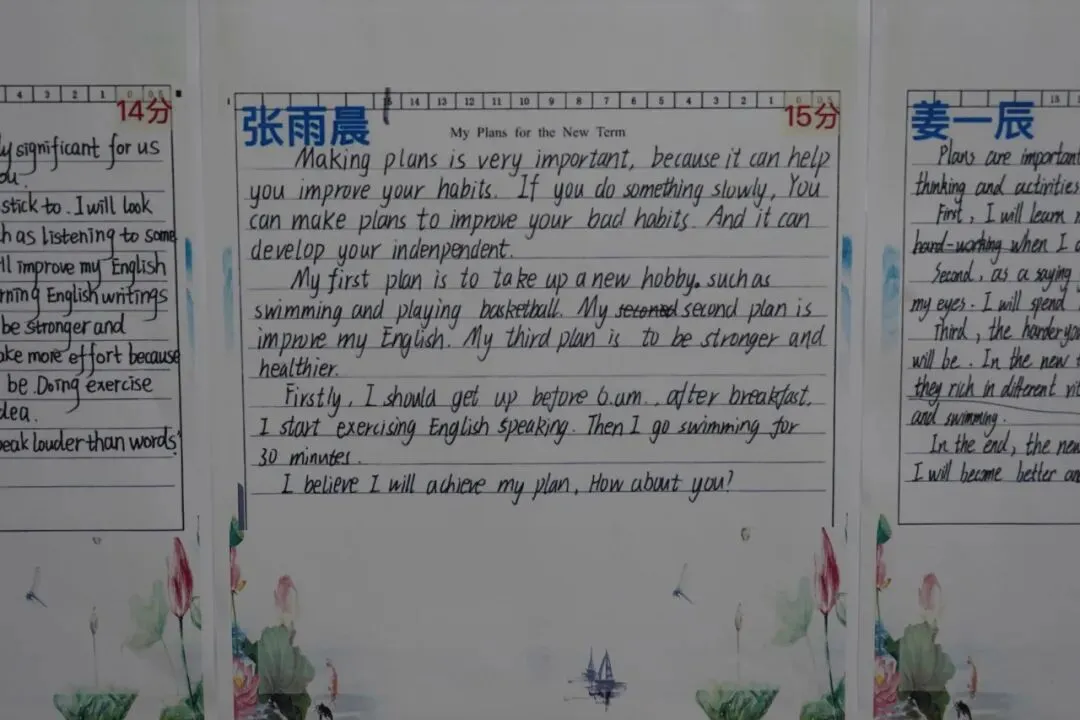 4 3 2 1 0 0.5
14分
y significant for us
ou.
stick to. I will look
h as listening to some
ll improve my English
rning English writings
be stronger and
ake more effort because
be. Doing exercise
dea.
eak louder than words"
15 14 13 12 11 10 9 8 7 6 5 4 3 2 1 0 0.5
张雨晨
15分
My Plans for the New Term
Making plans is very important, because it can help
you improve your habits. If you do something slowly, You
can make plans to improve your bad habits. And it can
develop your indenpendent.
My first plan is to take up a new hobby. such as
swimming and playing basketball. My seconed second plan is
improve my English. My third plan is to be stronger and
healthier.
Firstly, I should get up before 6.am., after breakfast,
I start exercising English speaking. Then I go swimming for
30 minutes.
I believe I will achieve my plan, How about you?
15
姜一辰
Plans are important
thinking and activities
First, I will learn
hard-working when I
Second, as a saying
my eyes. I will spend
Third, the harder yo
will be. In the new
they rich in different
and swimming.
In the end, the new
I will become better an